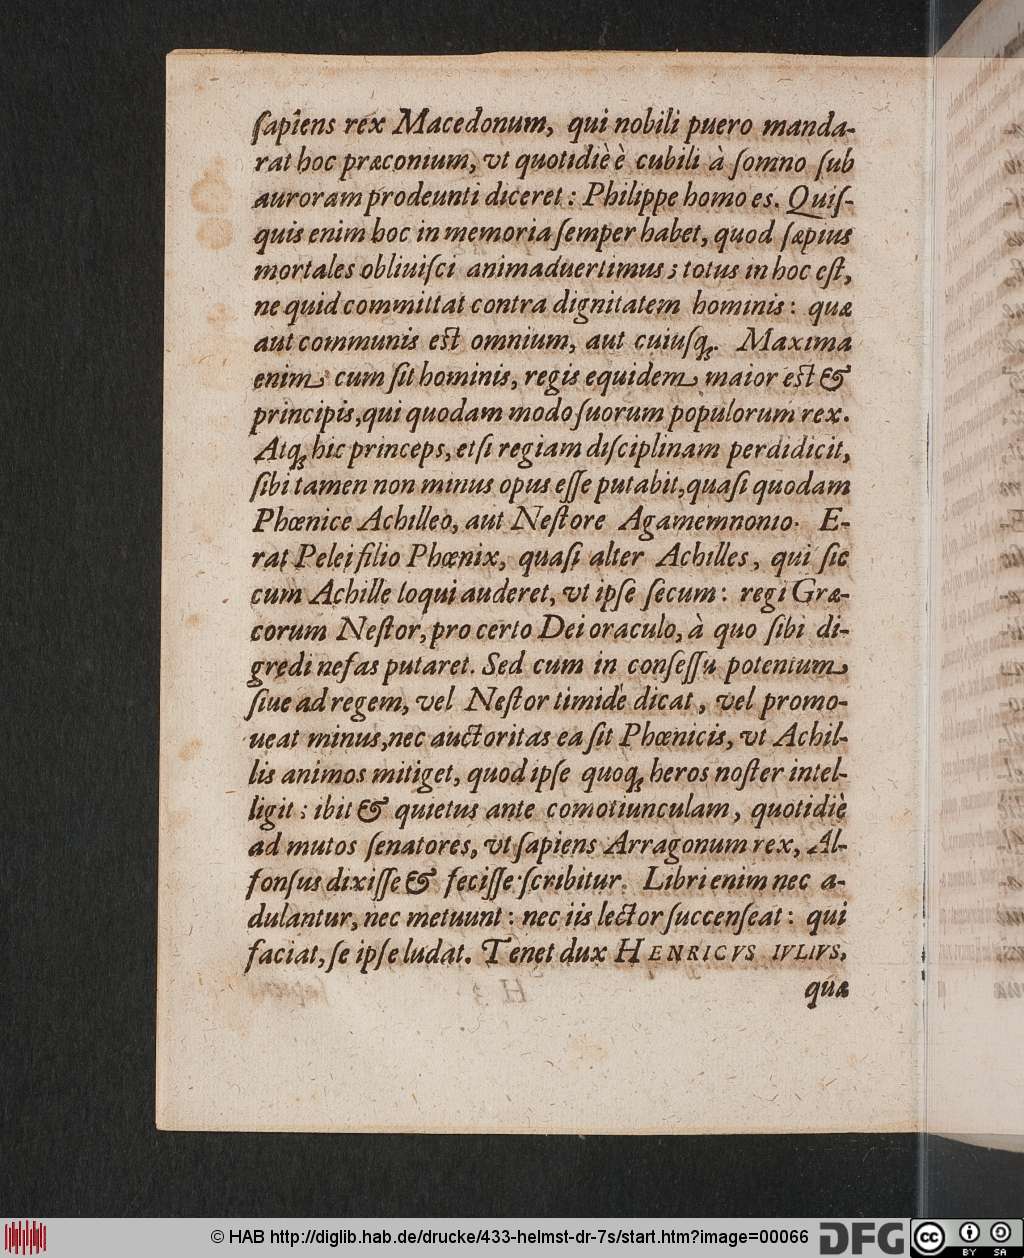 ſapiens rex Macedonum, qui nobili puero manda-
rat hoc præconium, vt quotidiè è cubili à ſomno ſub
auroram prodeunti diceret: Philippe homo es. Quiſ-
quis enim hoc in memoria ſemper habet, quod ſæpius
mortales obliuiſci animaduertimus; totus in hoc eſt,
ne quid committat contra dignitatem hominis: quæ
aut communis eſt omnium, aut cuiuſq;. Maxima
enim cum ſit hominis, regis equidem maior eſt &
principis, qui quodam modo ſuorum populorum rex.
Atq; hic princeps, etſi regiam diſciplinam perdidicit,
ſibi tamen non minus opus eſſe putabit, quaſi quodam
Phœnice Achilleo, aut Neſtore Agamemnonio. E-
rat Pelei filio Phœnix, quaſi alter Achilles, qui ſic
cum Achille loqui auderet, vt ipſe ſecum: regi Græ-
corum Neſtor, pro certo Dei oraculo, à quo ſibi di-
gredi nefas putaret. Sed cum in conſeſſu potentum
ſiue ad regem, vel Neſtor timidè dicat, vel promo-
ueat minus, nec auctoritas ea ſit Phœnicis, vt Achil-
lis animos mitiget, quod ipſe quoq; heros noſter intel-
ligit; ibit & quietus ante comotiunculam, quotidiè
ad mutos ſenatores, vt ſapiens Arragonum rex, Al-
fonſus dixiſſe & feciſſe ſcribitur. Libri enim nec a-
dulantur, nec metuunt: nec iis lector ſuccenſeat: qui
faciat, ſe ipſe ludat. Tenet dux HENRICVS IVLIVS,
quæ
© HAB http://diglib.hab.de/drucke/433-helmst-dr-7s/start.htm?image=00066
DFG
cc BY SA